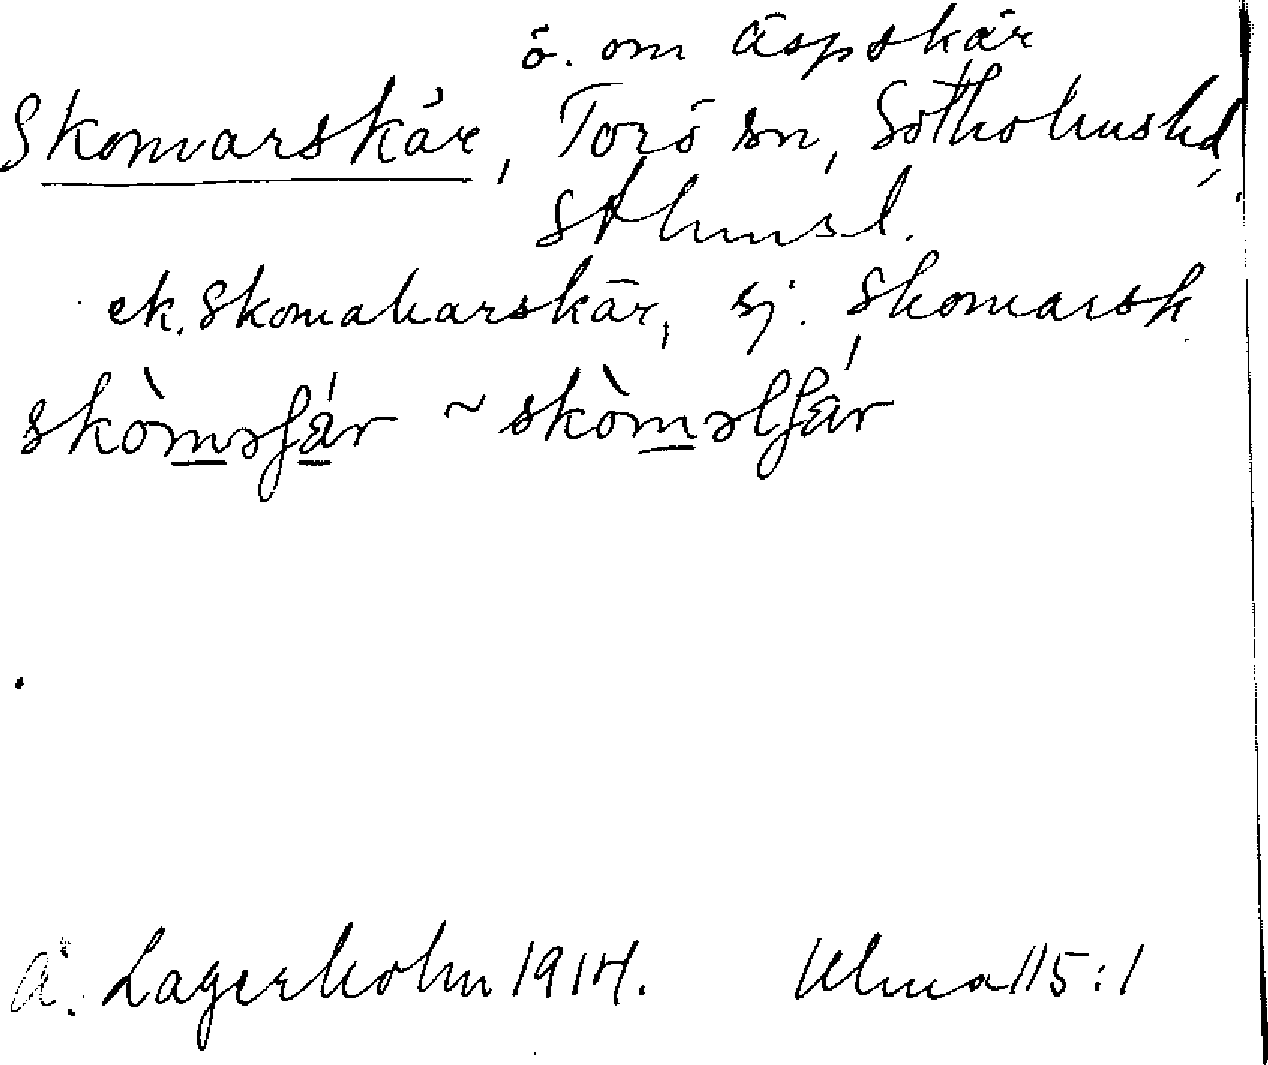 ö. om Äspskär
Skomarskär, Torö sn, Sotholms hd,
Sthmsl.
ek. Skomakarskär, sj. Skomarsk
skòməʃä́r ~ skòməlʃä́r
Å. Lagerholm 1914. Ulma 115:1